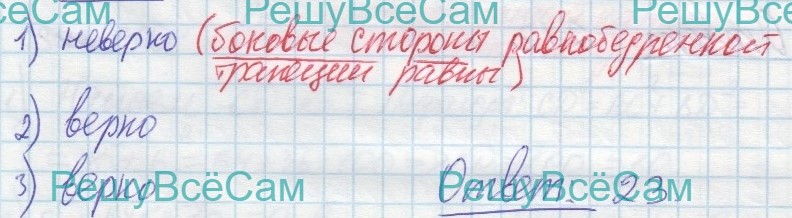 РешуВсеСам РешуВсёСам
1) неверно (боковые стороны равнобедренной
трапеции равны)
2) верно
3) верно Ответ. 23
РешуВсёСам РешуВсёСам